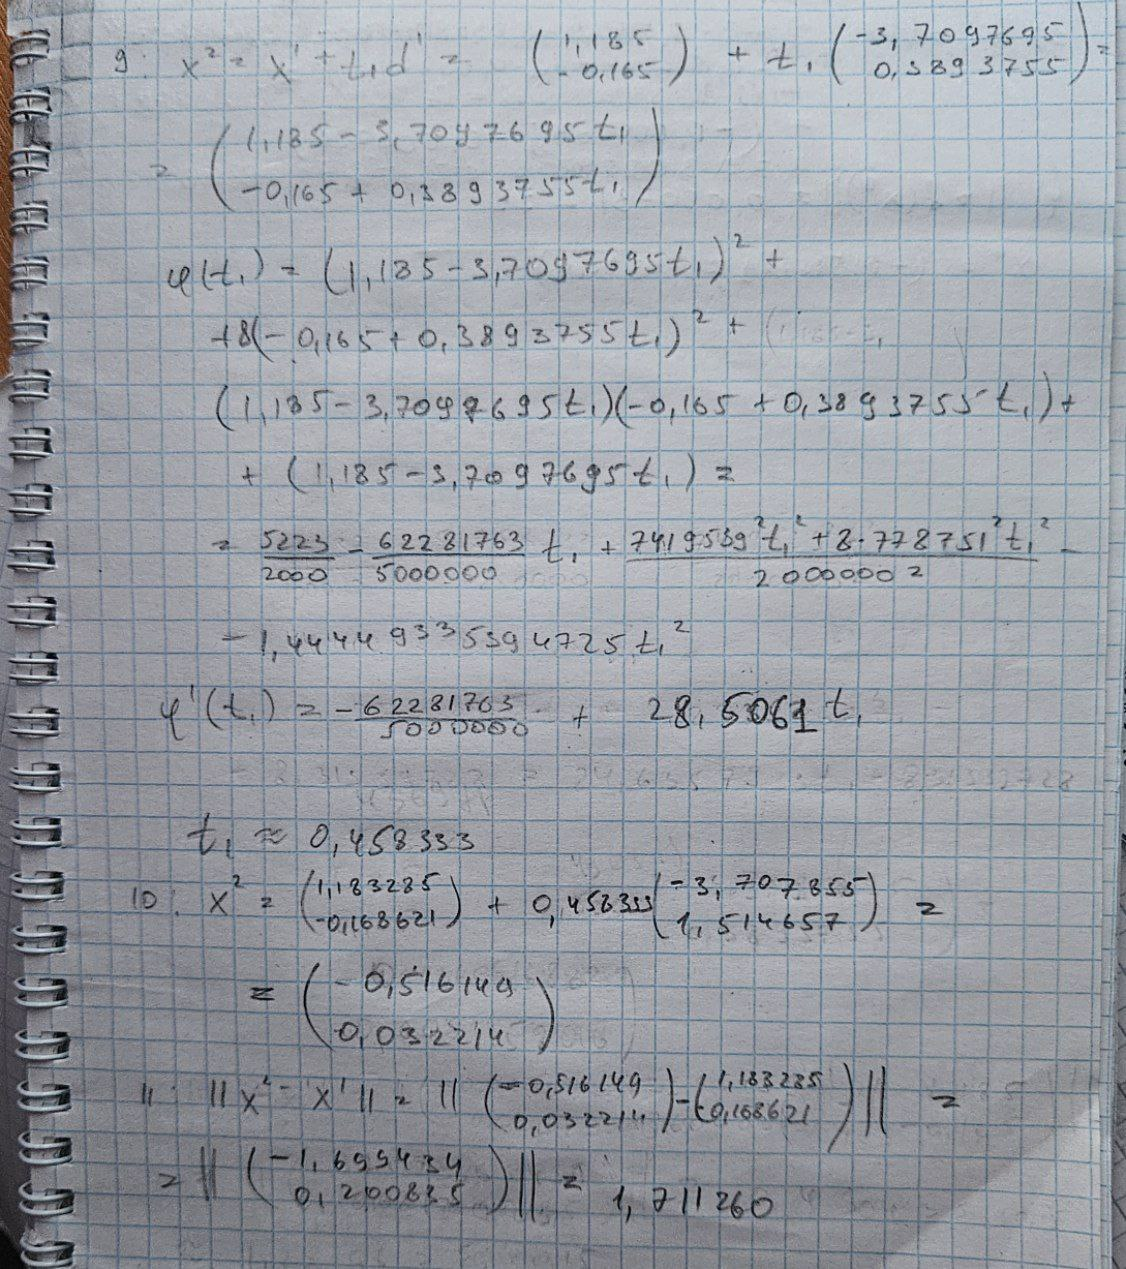 9: x² = x¹ + t₁d¹ = (1,185 -0,165) + t₁ (-3,7097695 0,3893755) =
= (1,185 - 3,7097695t₁ -0,165 + 0,3893755t₁)
φ(t₁) = (1,185 - 3,7097695t₁)² +
+8(-0,165 + 0,3893755t₁)² +
(1,185 - 3,7097695t₁)(-0,165 + 0,3893755t₁) +
+ (1,185 - 3,7097695t₁) =
= 5223/2000 - 62281763/5000000 t₁ + (7419539²t₁² + 8·778751²t₁²)/2000000² -
- 1,44449335394725t₁²
φ'(t₁) = - 62281763/5000000 + 28,5061t₁
t₁ ≈ 0,458333
10: x² = (1,183285 -0,168621) + 0,458333(-3,707855 1,514657) =
= (-0,516149 0,032214)
11: ||x² - x¹|| = ||(-0,516149 0,032214) - (1,183285 0,168621)|| =
= ||(-1,699434 0,200835)|| = 1,711260